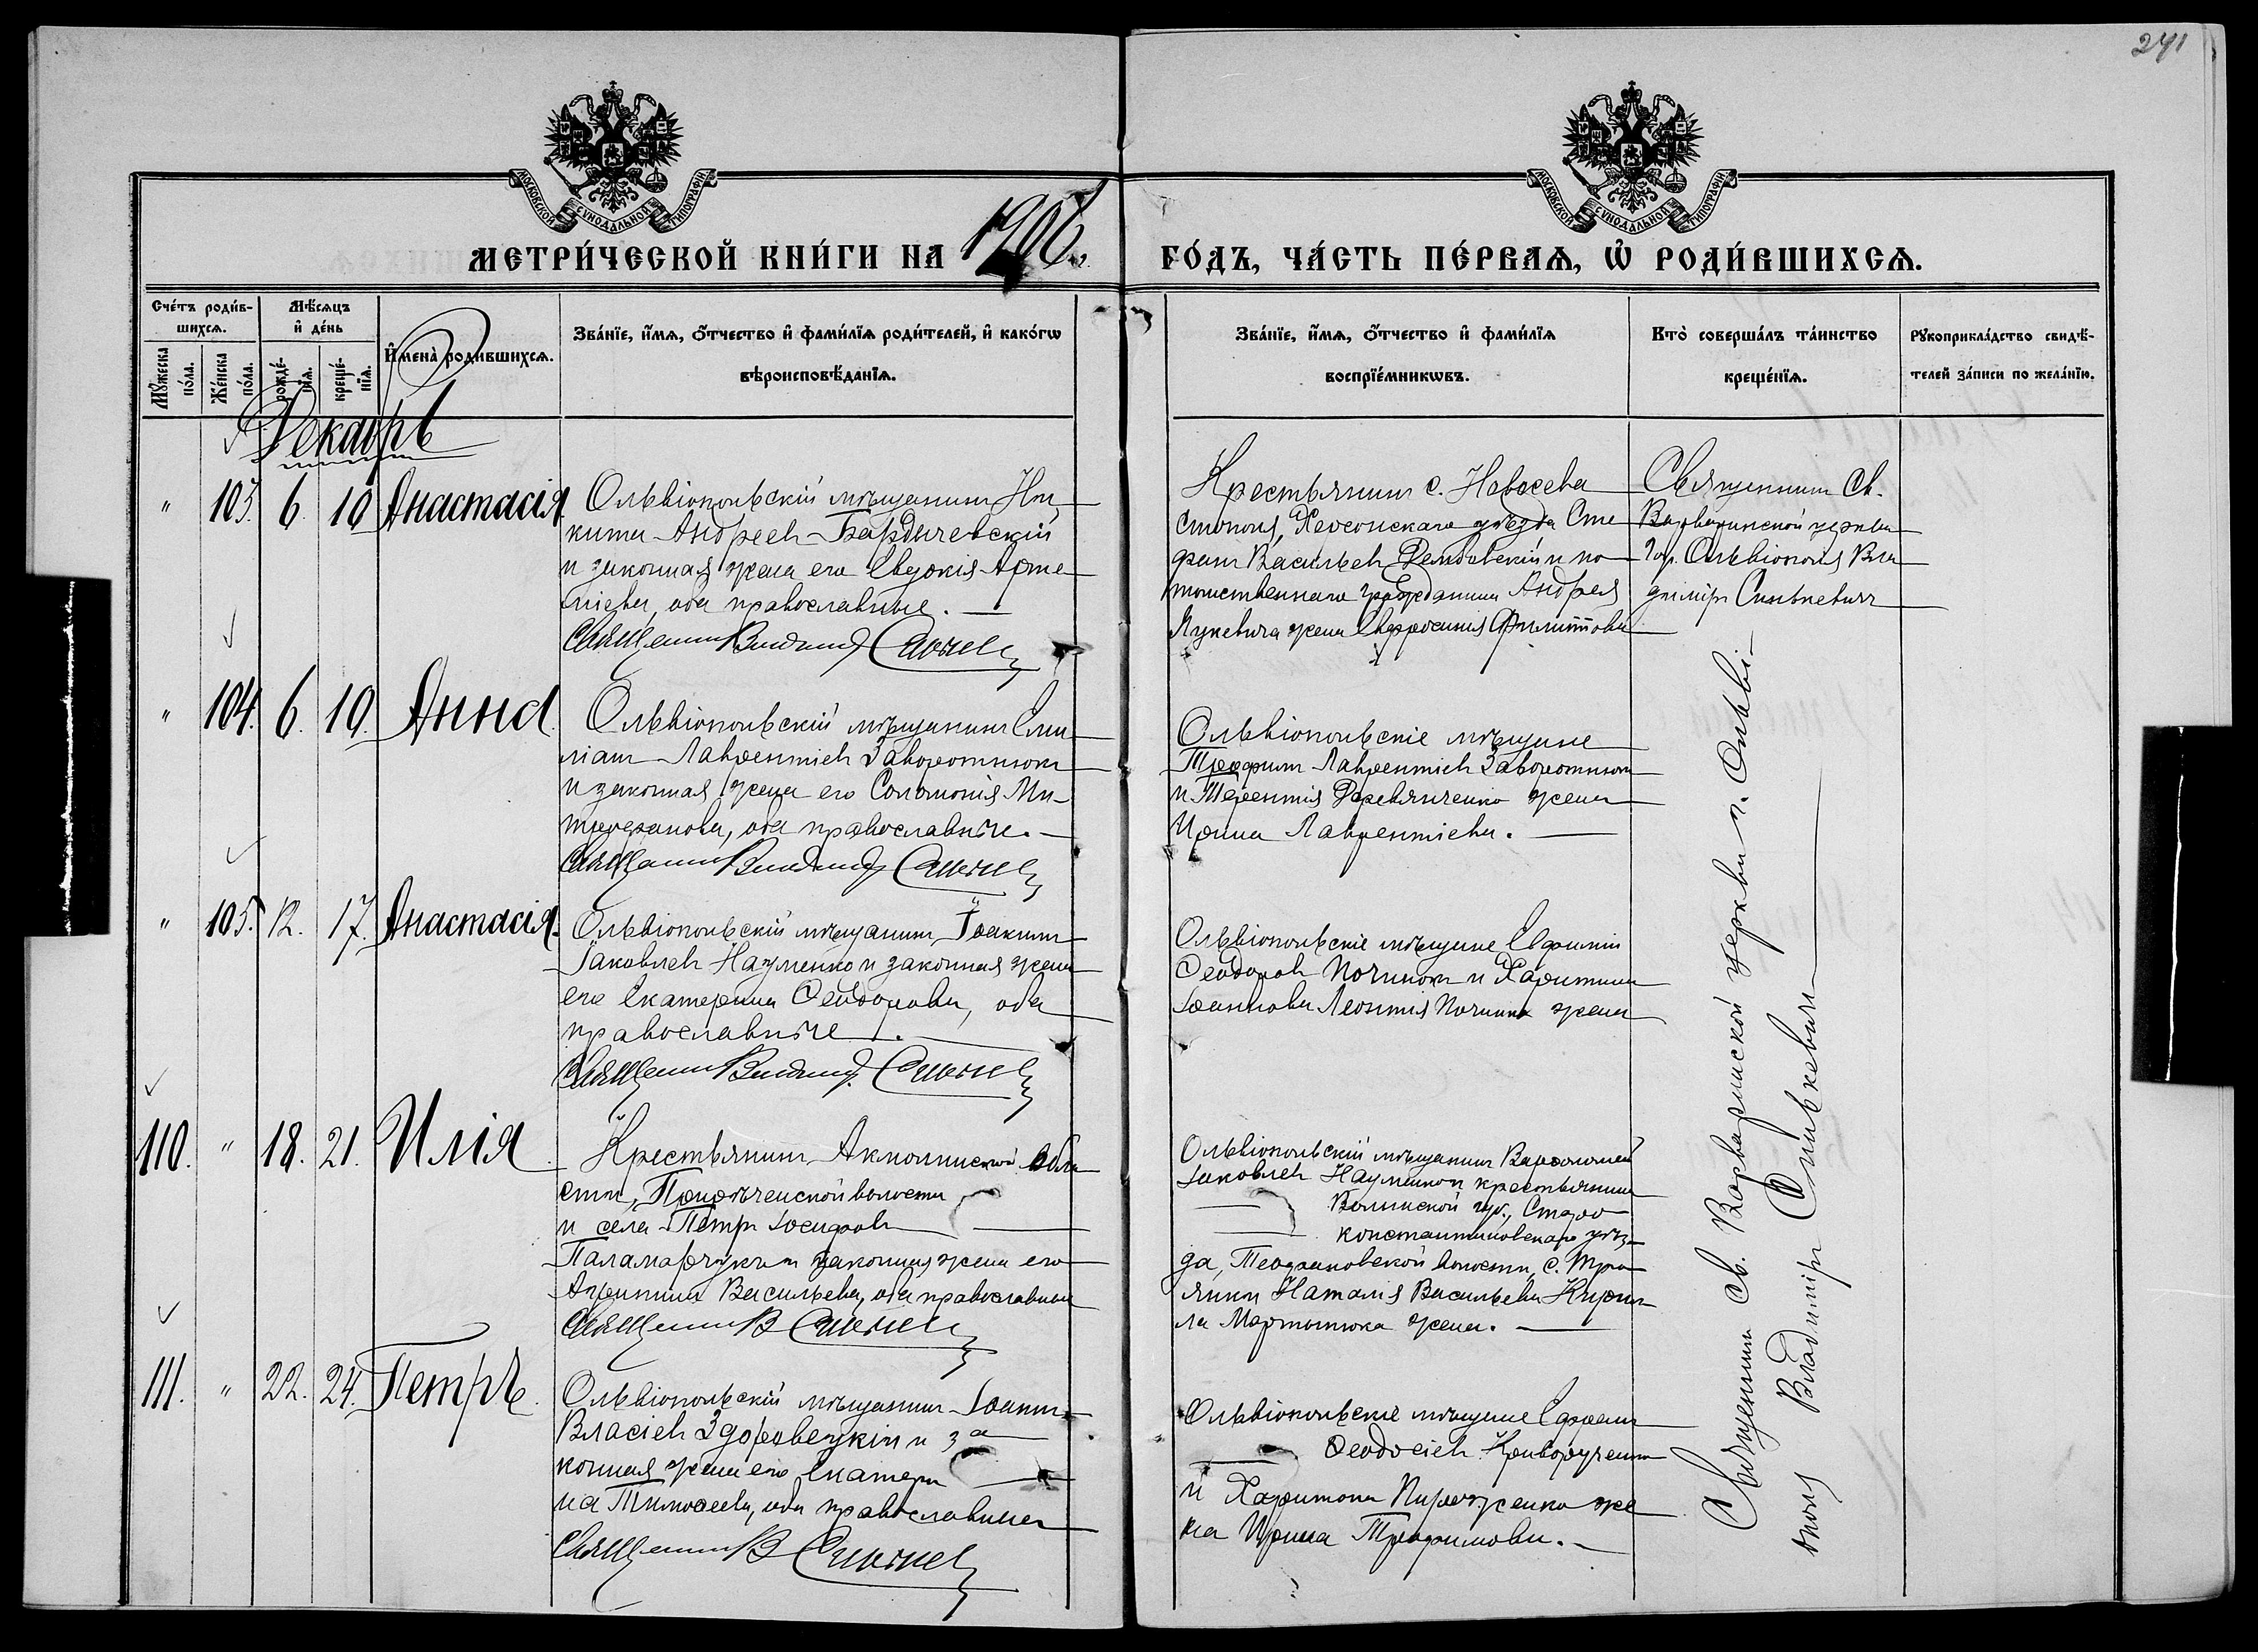 241
МОСКОВСКОЙ СУНОДАЛЬНОЙ ТИПОГРАФІИ
МОСКОВСКОЙ СУНОДАЛЬНОЙ ТИПОГРАФІИ
МЕТРИ́ЧЕСКОЙ КНИ́ГИ НА 1906. ГО́ДЪ, ЧА́СТЬ ПЕ́РВАѦ, Ѡ҆ РОДИ́ВШИХСѦ.
Сче́тъ роди́в-
шихсѧ.
Мꙋ́жеска по́ла.
Же́нска по́ла.
Мѣ́сѧцъ и҆ де́нь
рожде́-нїѧ.
креще́-нїѧ.
И҆мена̀ роди́вшихсѧ.
Зва́нїе, и҆́мѧ, ѻ҆́тчество и҆ фами́лїѧ роди́телей, и҆ како́гѡ
вѣроисповѣ́данїѧ.
Зва́нїе, и҆́мѧ, ѻ҆́тчество и҆ фами́лїѧ
воспрїе́мникѡвъ.
Кто̀ соверша́лъ та́инство
креще́нїѧ.
Рꙋкоприкла́дство свидѣ́-
телей за́писи по жела́нїю.
Декабрь
" 103. 6. 10 Анастасія
Ольвіопольскій мѣщанинъ Ни-
кита Андреевъ Бардичевскій
и законная жена его Евдокія Арте-
міева, оба православные.
Священникъ Владиміръ Синьке
Крестьянинъ с. Новосева-
стополя, Херсонскаго уѣзда Сте-
фанъ Васильевъ Дембовскій и по-
томственнаго гражданина Андрея
Лукевича жена Евфросинія Филиппова
Священникъ Св.
Варваринской церкви
гор. Ольвіополя Вла-
диміръ Синькевичъ
" 104. 6. 10. Анна
Ольвіопольскій мѣщанинъ Еми-
ліанъ Лаврентіевъ Заворотнюкъ
и законная жена его Соломонія Ми-
трофанова, оба православные.
Священникъ Владиміръ Синьке
Ольвіопольскіе мѣщане
Трофимъ Лаврентіевъ Заворотнюкъ
и Терентія Деревянченко жена
Ирина Лаврентіева.
" 105. 12. 17. Анастасія.
Ольвіопольскій мѣщанинъ Іоакимъ
Іаковлевъ Науменко и законная жена
его Екатерина Ѳеодорова, оба
православные.
Священникъ Владиміръ Синьке
Ольвіопольскіе мѣщане Евфимій
Ѳеодоровъ Починокъ и Харитина
Іоаннова Леонтія Починка жена
110. " 18. 21. Илія
Крестьянинъ Акмолинской обла-
сти, волости
и села Петръ Іосифовъ
Паламарчукъ и законная жена его
Агрипина Васильева, оба православные
Священникъ В Синьке
Ольвіопольскій мѣщанинъ Варѳоломей
Іаковлевъ Науменко и крестьянина
Волынской губ., Старо-
константиновскаго уѣз-
да, Теофановской волости, с. Тро-
янки Наталія Васильева Кирил-
ла Мартынюка жена.
111. " 22. 24. Петръ.
Ольвіопольскій мѣщанинъ Іоаннъ
Власіевъ Здоровецкій и за-
конная жена его Екатери-
на Тимоѳеева, оба православные
Священникъ В Синьке
Ольвіопольскіе мѣщане Ефремъ
Ѳеодосіевъ Криворученко
и Харитона Пироженко же-
на Ирина Трофимова.
Священникъ Св. Варваринской церкви г. Ольві-
ополя Владиміръ Синькевичъ